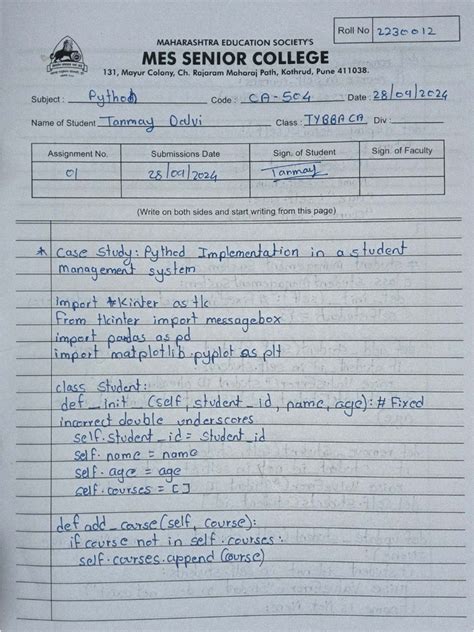 Roll No 2230012
MAHARASHTRA EDUCATION SOCIETY'S
MES SENIOR COLLEGE
131, Mayur Colony, Ch. Rajaram Maharaj Path, Kothrud, Pune 411038.
Subject : Python Code : CA-504 Date : 28/09/2024
Name of Student : Tanmay Dalvi Class : TYBBACA Div :
Assignment No. Submissions Date Sign. of Student Sign. of Faculty
01 28/09/2024 Tanmay
(Write on both sides and start writing from this page)
* Case Study: Pythod Implementation in a student
management system
Import tkinter as tk
From tkinter import messagebox
import pandas as pd
import matplotlib.pyplot as plt
class Student:
def _init (self, student_id, name, age): # Fixed
incorrect double underscores
self.student_id = student_id
self.name = name
self.age = age
self.courses = []
def add_course(self, course):
if course not in self.courses:
self.courses.append(course)